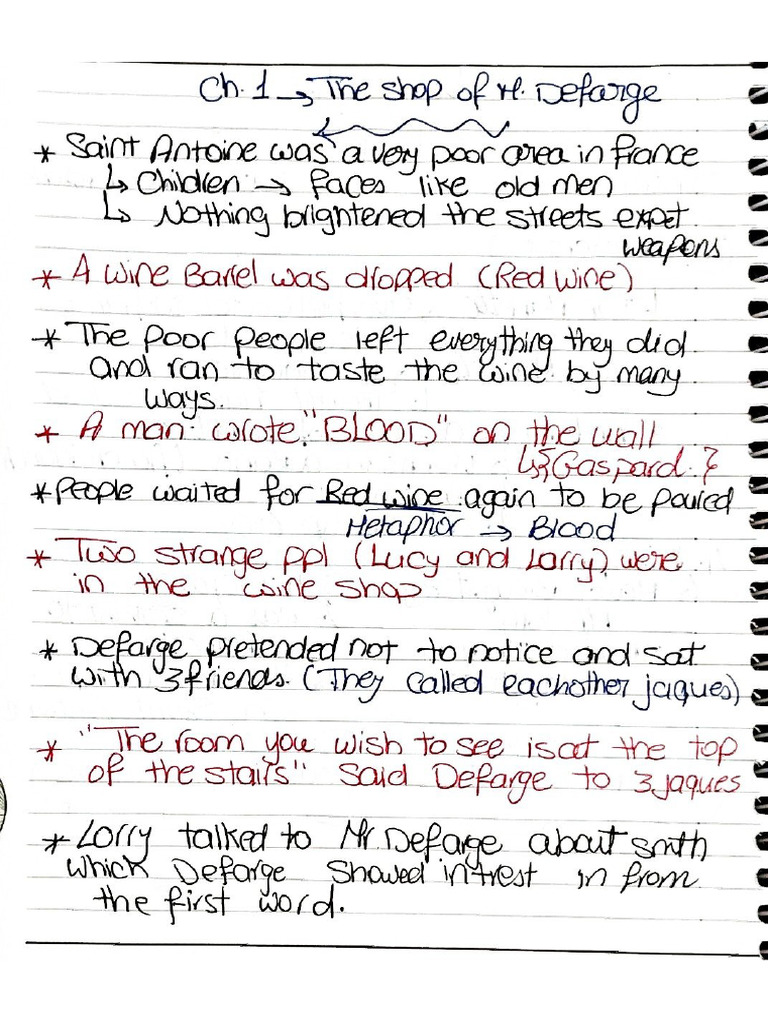 Ch. 1 → The shop of M. Defarge
* Saint Antoine was a very poor area in france
↳ Children → faces like old men
↳ Nothing brightened the streets expet
weapons
* A wine Barrel was dropped (Red wine)
* The poor people left everything they did
and ran to taste the wine by many
ways.
* A man wrote "BLOOD" on the wall
↳ {Gaspard}
* People waited for Red wine again to be poured
Metaphor → Blood
* Two strange ppl (Lucy and Lorry) were
in the wine shop
* Defarge pretended not to notice and sat
with 3 friends. (They called eachother jaques)
* "The room you wish to see is at the top
of the stairs" Said Defarge to 3 jaques
* Lorry talked to Mr. Defarge about smth
which Defarge showed intrest in from
the first word.